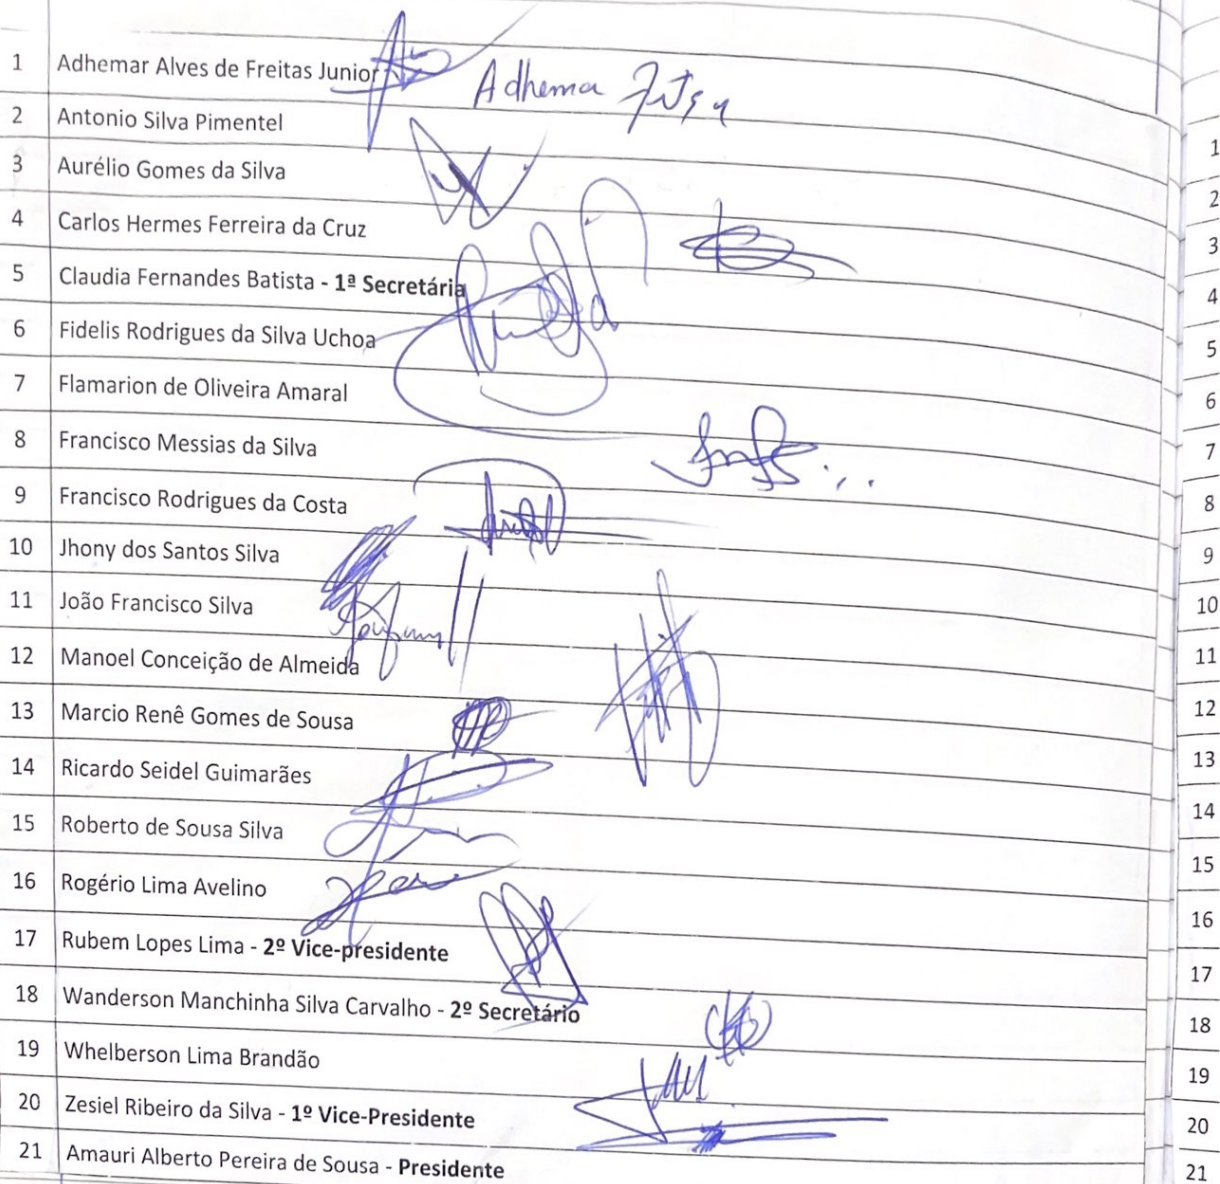 1 Adhemar Alves de Freitas Junior Adhema
2 Antonio Silva Pimentel
3 Aurélio Gomes da Silva
4 Carlos Hermes Ferreira da Cruz
5 Claudia Fernandes Batista - 1ª Secretária
6 Fidelis Rodrigues da Silva Uchoa
7 Flamarion de Oliveira Amaral
8 Francisco Messias da Silva
9 Francisco Rodrigues da Costa
10 Jhony dos Santos Silva
11 João Francisco Silva
12 Manoel Conceição de Almeida
13 Marcio Renê Gomes de Sousa
14 Ricardo Seidel Guimarães
15 Roberto de Sousa Silva
16 Rogério Lima Avelino
17 Rubem Lopes Lima - 2º Vice-presidente
18 Wanderson Manchinha Silva Carvalho - 2º Secretário
19 Whelberson Lima Brandão
20 Zesiel Ribeiro da Silva - 1º Vice-Presidente
21 Amauri Alberto Pereira de Sousa - Presidente
1
2
3
4
5
6
7
8
9
10
11
12
13
14
15
16
17
18
19
20
21